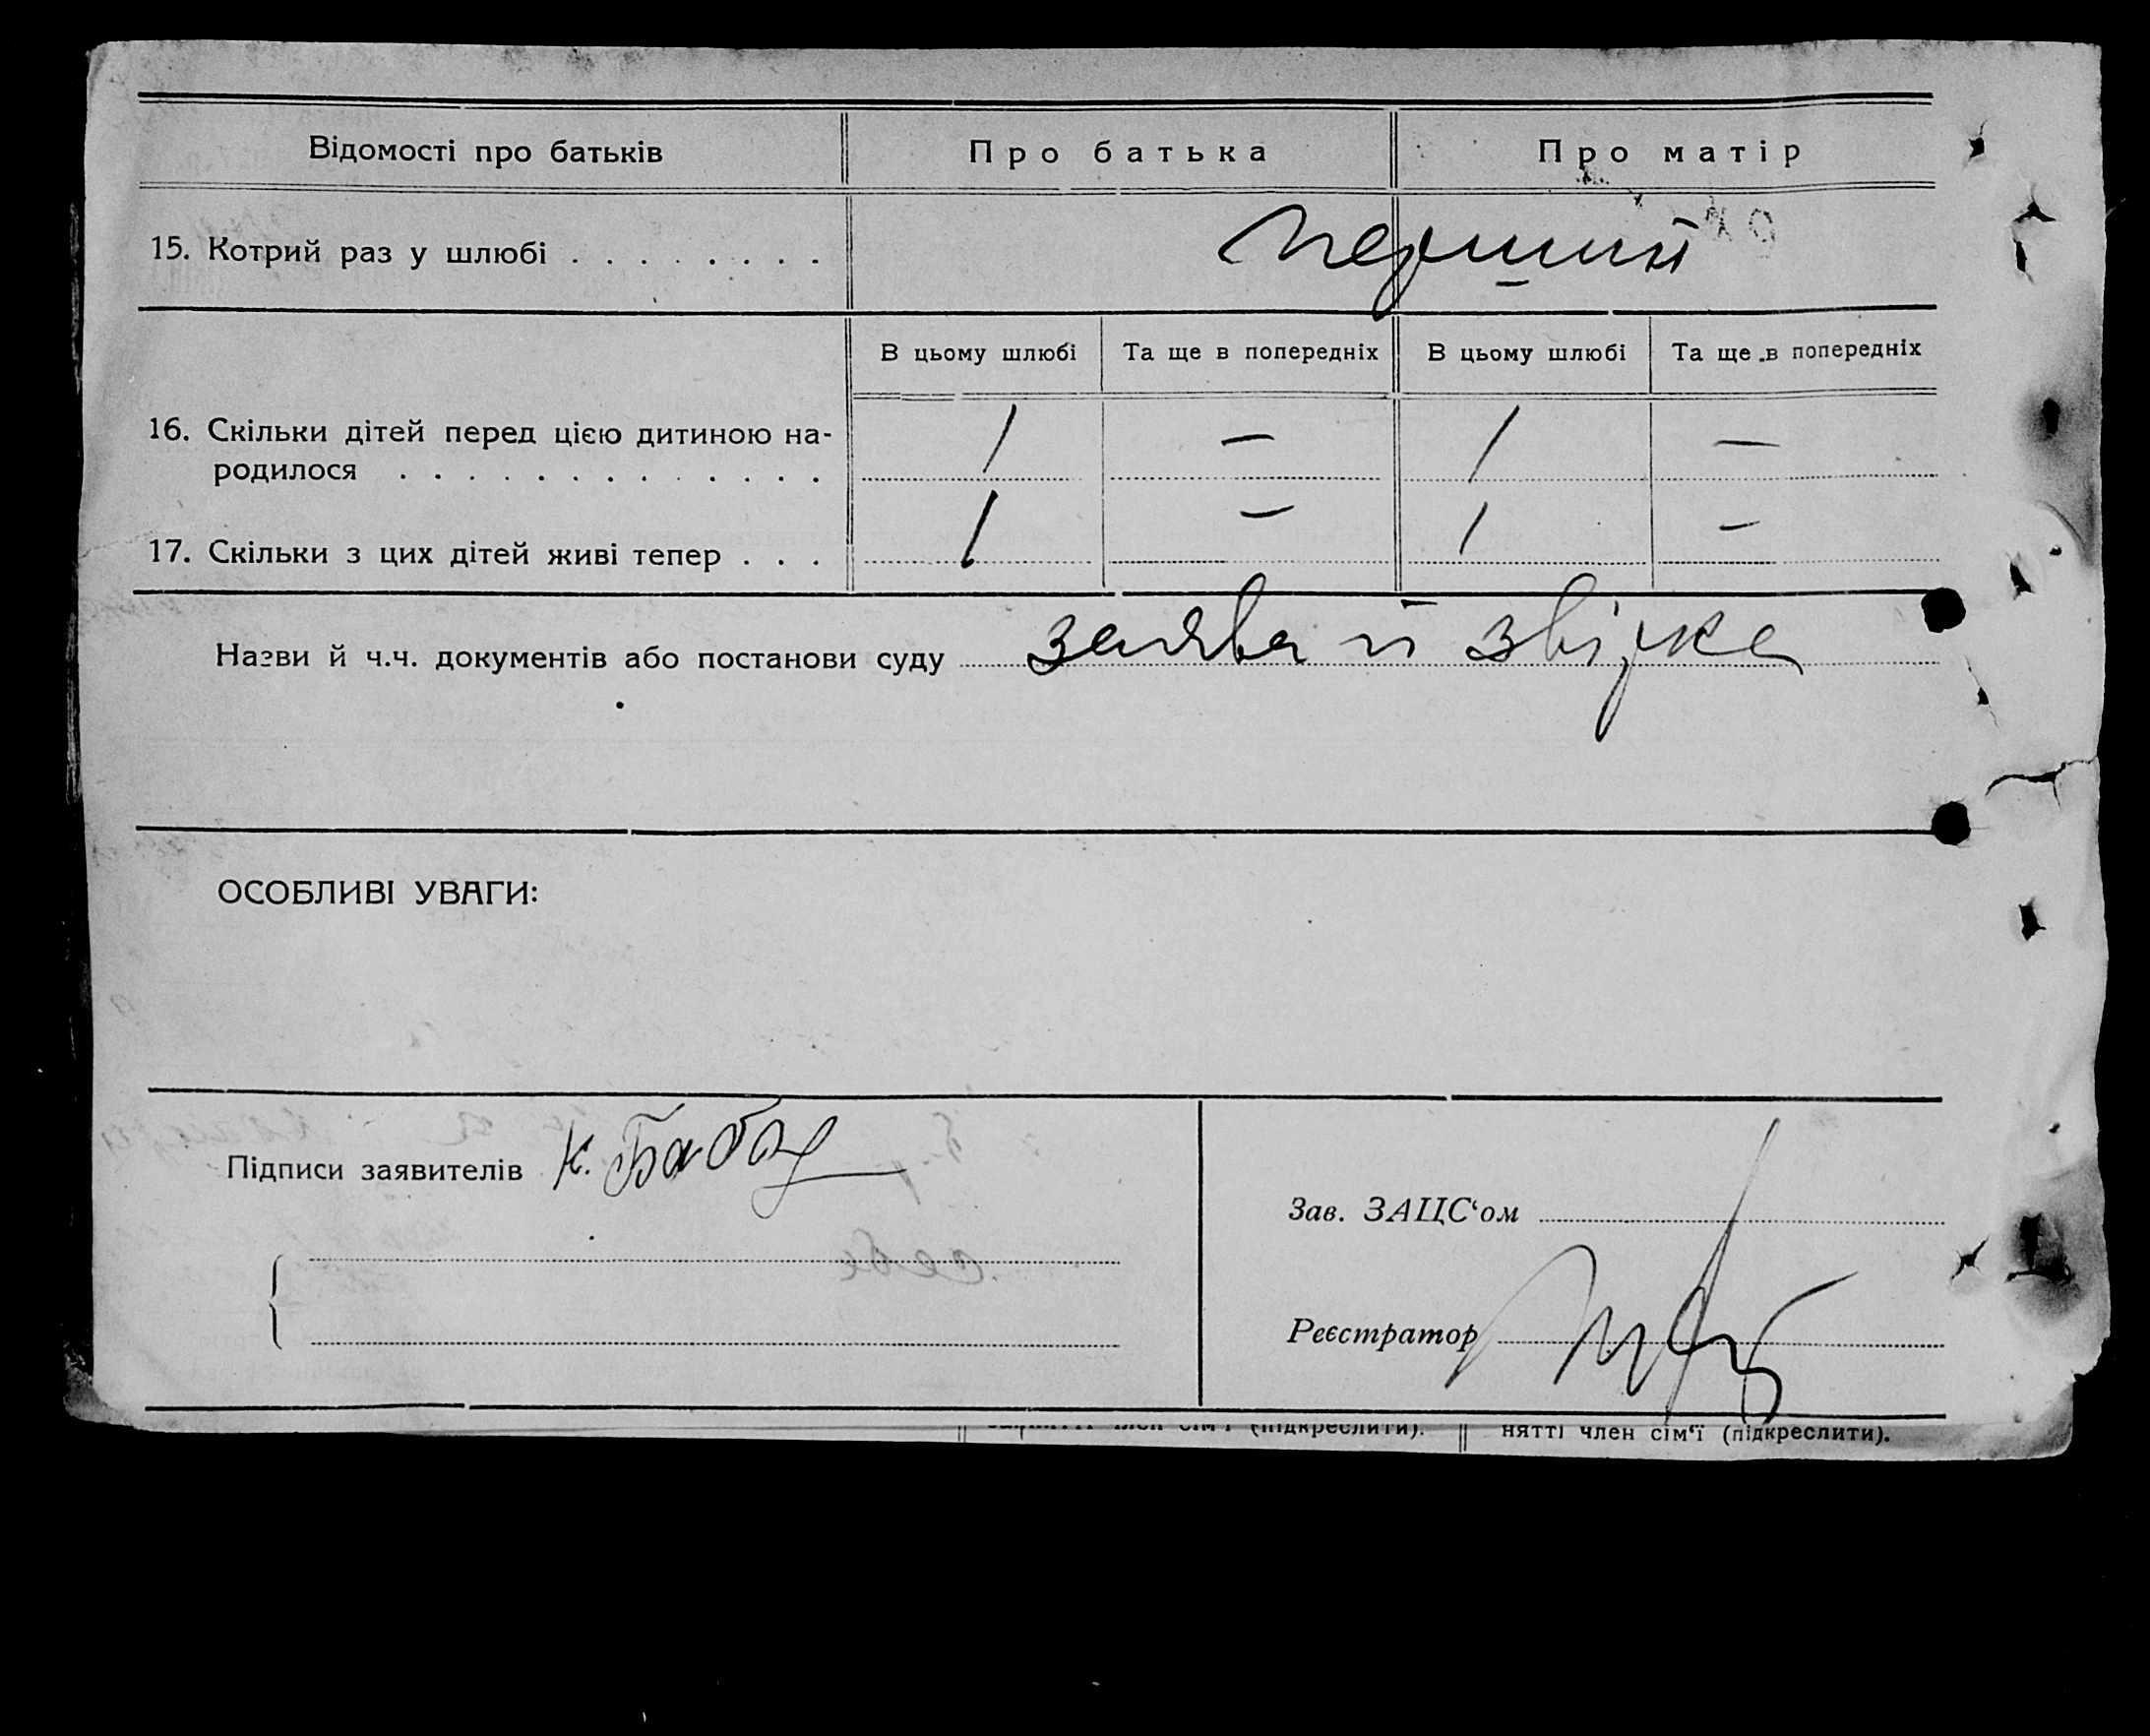 Відомості про батьків Про батька Про матір
15. Котрий раз у шлюбі . . . . . . . . перший
В цьому шлюбі Та ще в попередніх В цьому шлюбі Та ще в попередніх
16. Скільки дітей перед цією дитиною на-
родилося . . . . . . . . . . . . . 1 — 1 —
17. Скільки з цих дітей живі тепер . . . 1 — 1 —
Назви й ч.ч. документів або постанови суду заява й звірка
ОСОБЛИВІ УВАГИ:
Підписи заявителів К.
Зав. ЗАЦС‘ом
Реєстратор
член сім‘ї (підкреслити). нятті член сім‘ї (підкреслити).